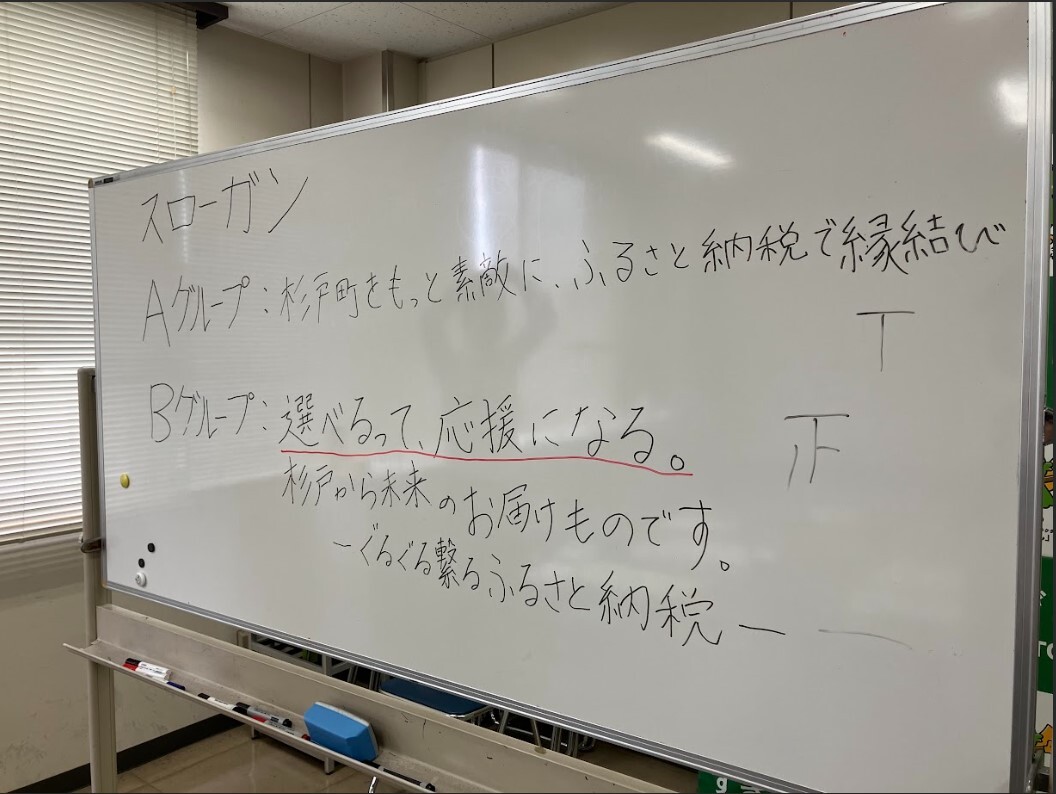 スローガン
Aグループ：杉戸町をもっと素敵に、ふるさと納税で縁結び
Bグループ：選べるって、応援になる。
杉戸から未来のお届けものです。
−ぐるぐる繋るふるさと納税−